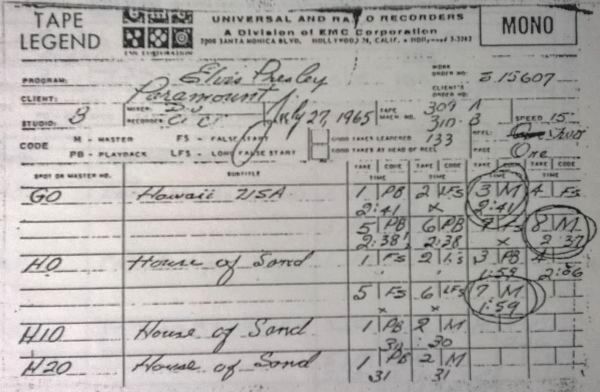 TAPE LEGEND
EMC CORPORATION
UNIVERSAL AND RADIO RECORDERS
A Division of EMC Corporation
SANTA MONICA BLVD., HOLLYWOOD
MONO
PROGRAM: Elvis Presley
WORK ORDER NO. S 15607
CLIENT: Paramount
CLIENT'S ORDER NO.
STUDIO: B
MIXER:
RECORDER:
July 27, 1965
TAPE MACH. NO. 309 A
310 B
SPEED 15
CODE
M - MASTER FS - FALSE START
GOOD TAKES LEADERED 133
REEL:
PB - PLAYBACK LFS - LONG FALSE START
GOOD TAKES AT HEAD OF REEL
PAGE One
SPOT OR MASTER NO. SUBTITLE TAKE CODE TAKE CODE TAKE CODE TAKE CODE
TIME TIME TIME TIME
GO Hawaii USA 1 PB 2 LFS 3 M 4 FS
2:41 x 2:41
5 PB 6 PB 7 FS 8 M
2:38 2:38 x 2:37
HO House of Sand 1 FS 2 3 PB
1:59 2:06
5 FS 6 LFS 7 M
x x 1:59
H10 House of Sand 1 PB 2 M
30 :30
H20 House of Sand 1 PB 2 M
31 31